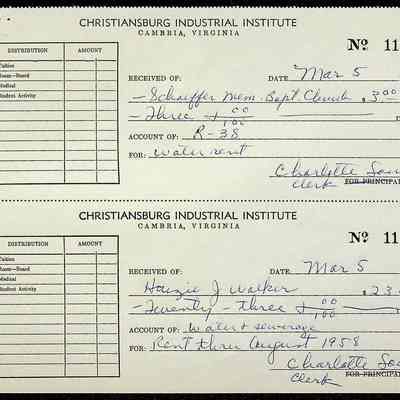 CHRISTIANSBURG INDUSTRIAL INSTITUTE
CAMBRIA, VIRGINIA
DISTRIBUTION AMOUNT
Tuition
Room—Board
Medical
Student Activity
Nº 11
RECEIVED OF: DATE Mar 5
- Schaeffer Mem. Bapt. Church $3.00
- Three + 00/100
ACCOUNT OF: R-38
FOR: water rent
Charlotte
Clerk FOR PRINCIPAL
CHRISTIANSBURG INDUSTRIAL INSTITUTE
CAMBRIA, VIRGINIA
DISTRIBUTION AMOUNT
Tuition
Room—Board
Medical
Student Activity
Nº 11
RECEIVED OF: DATE Mar 5
- J Walker $23
- Twenty-three + 00/100
ACCOUNT OF: Water + sewerage
FOR: Rent thru August 1958
Charlotte
Clerk FOR PRINCIPAL